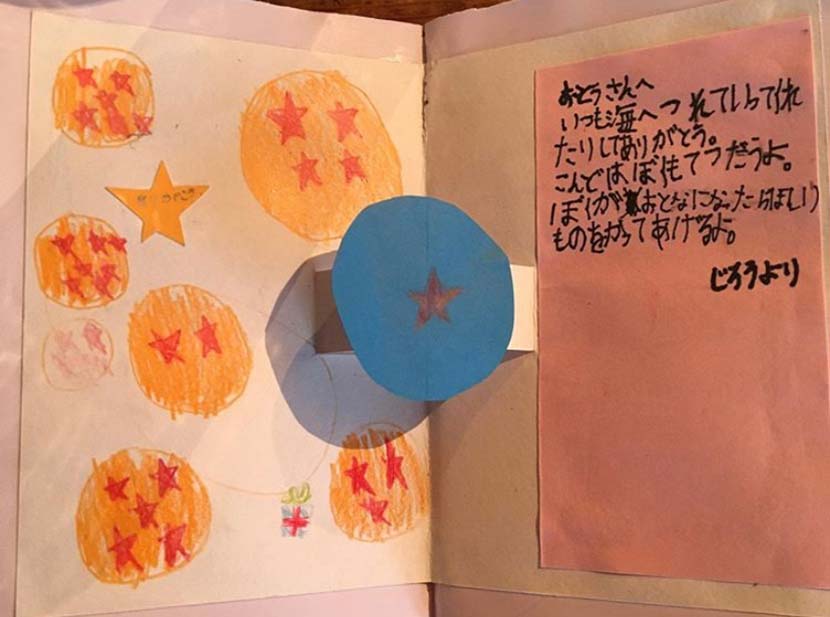 おとうさんへ
いつも海へつれていって休れ
たりしてありがとう。
こんどは、ぼくもてつだうよ。
ぼくがおとなになったらほしい
ものをかってあげるよ。
じろうより